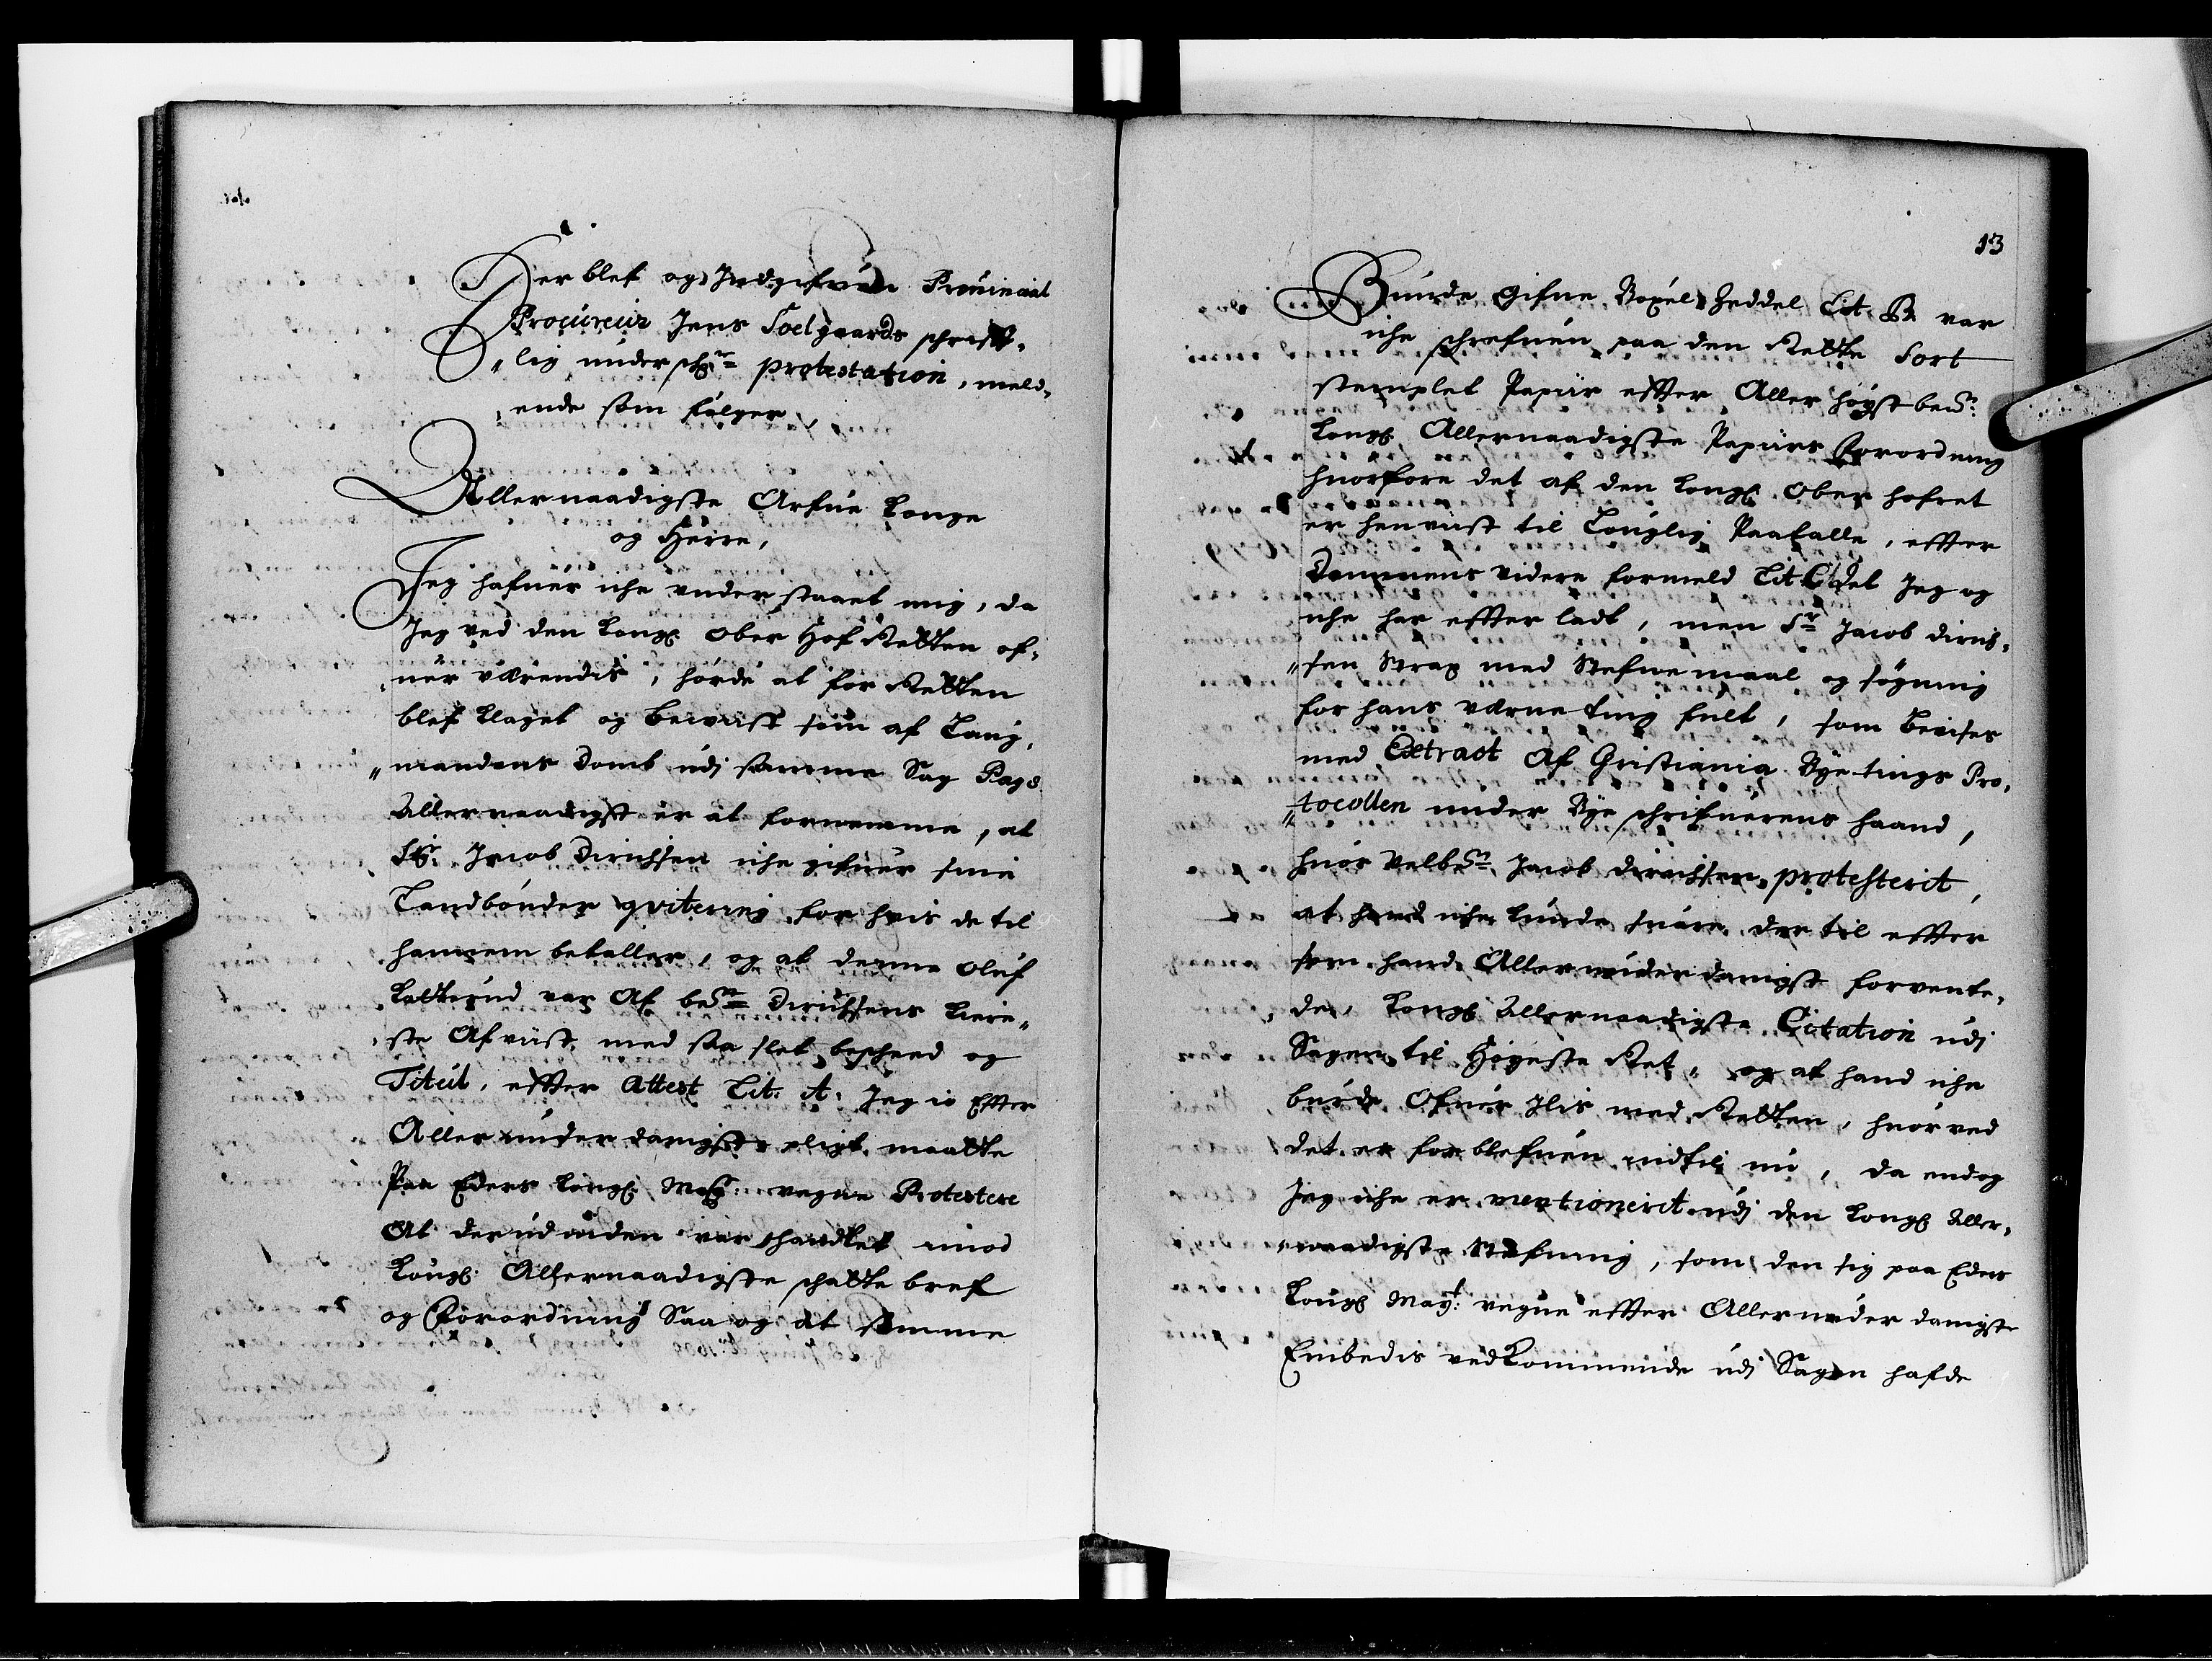 Der blef og Indgifuen Prouincial
Procureur Jens Toelgaards schrifft-
lig underschr: protestation, meld-
ende som følger,
Allernaadigste Arfue Konge
og Herre,
Jeg hafuer iche understaaet mig, da
Jeg ved den Kongl. Ober Hof Retten of-
uer værendis, hørde at for Retten
blef klaget og beviist som af Laug-
mandens Domb udj samme Sag Pag 8
Allernaadigst er at fornemme, at
Sr. Jacob Dirichsen iche gifuer sine
Landbønder qvitering for hvis de til
hannem betaller, og at denne Oluf
var Af bemte Dirichsens
ste Afviist med saa slet bescheed og
Titul, effter Attest Lit: A. Jeg io Effter
Allerunderdanigste pligt maatte
Paa Eders Kongl. Mays: vegne Protestere
At derudinden var handlet imod
Kongl: Allernaadigste schatte bref
og Forordning Saa og at samme
13
Bunde gifne Bøxel Zeddel Lit. B. var
iche schrefuen paa den Rette Sort
stemplet Papiir effter Aller høyst bemte:
Kongl. Allernaadigste Papiirs Forordning
huorfore det af den Kongl. Ober hofret
er henviist til Louglig Paatalle, effter
Dommens videre formeld Lit. C. det Jeg og
iche har effter ladt, men Sr Jacob Dirich-
sen strax med Stefnemaal og søgning
for hans værneting fult, som bevises
med Extract Af Christiania Bye tings Pro-
tocollen under Bye schrifuerens haand,
huor Velbemte Jacob Dirichsen protesterit,
at hand iche kunde suare der til effter
som hand Allerunderdanigst forvente-
de, Kongl Allernaadigste Citation udj
Sagen til Høyeste Ret, og at hand iche
burde Ofuer Jlis med Retten, huorved
det er forblefuen indtil nu, da endog
Jeg iche er mentionerit udj den Kongl Aller-
naadigste Stefning, som den sig paa Eders
Kongl May: vegne effter Allerunderdanigste
Embedis vedkommende udj Sagen hafde